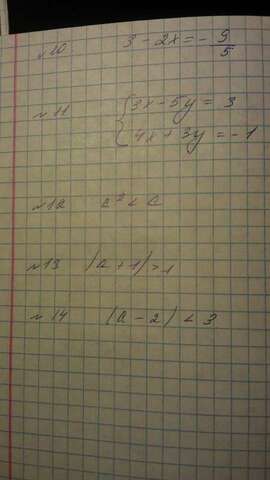 №10 3 - 2x = - 9/5
№11 { 3x - 5y = 3
4x + 3y = -1
№12 a² < a
№13 |a + 1| > 1
№14 |a - 2| < 3